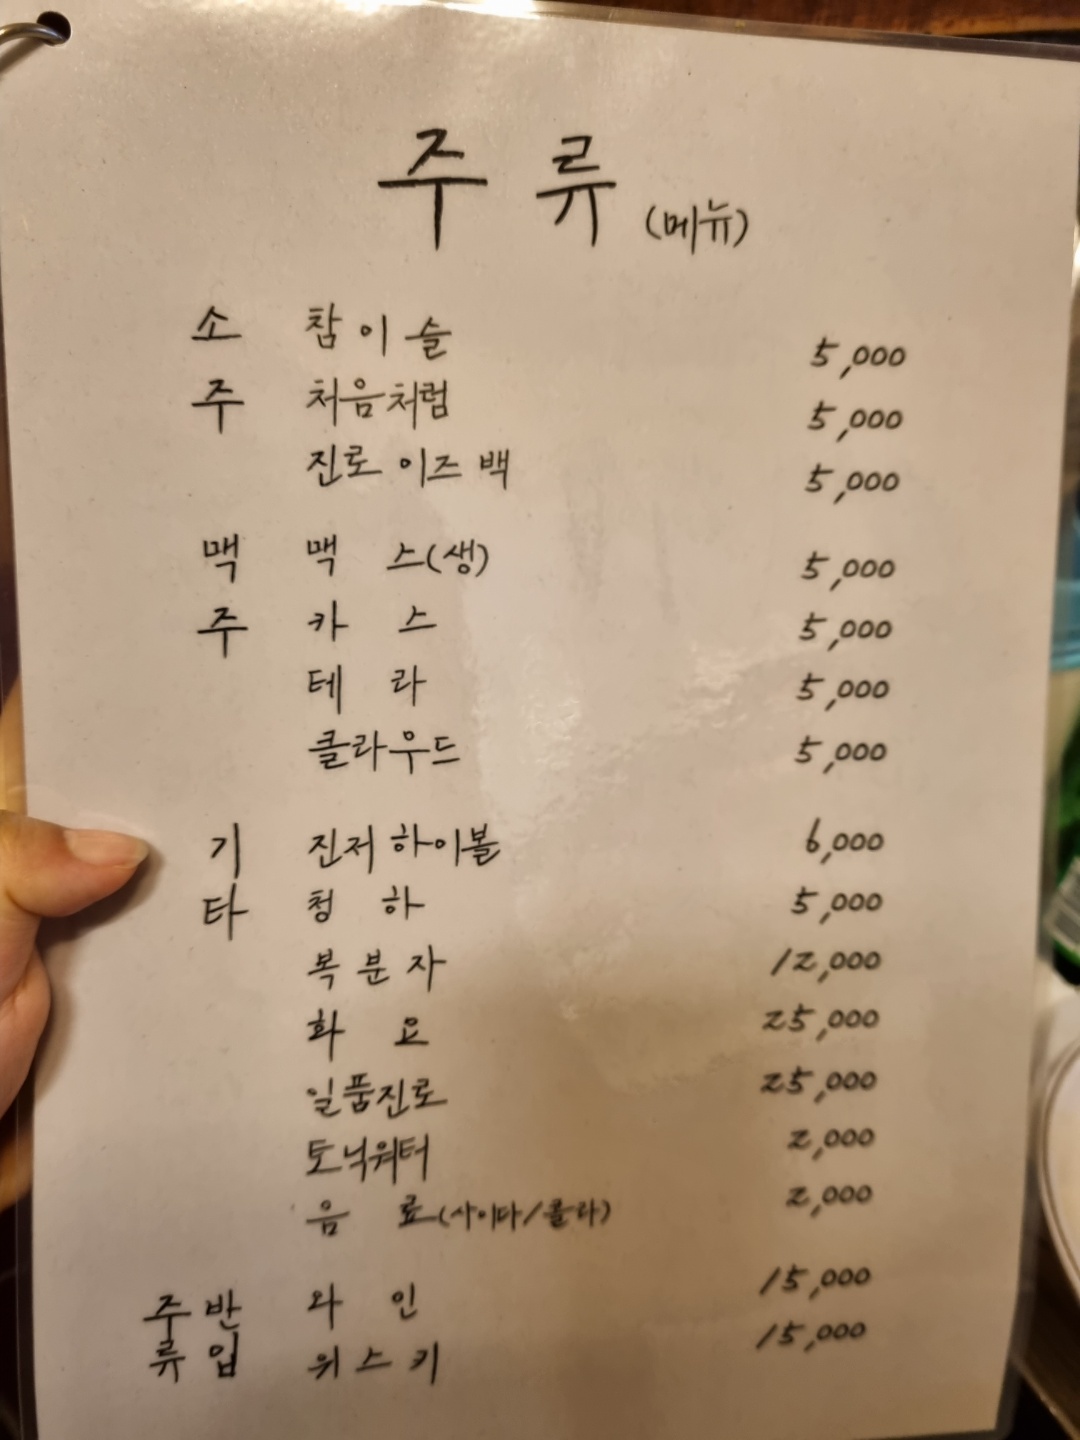 주 류 (메뉴)
소 참이슬 5,000
주 처음처럼 5,000
진로 이즈 백 5,000
맥 맥 스(생) 5,000
주 카 스 5,000
테 라 5,000
클라우드 5,000
기 진저 하이볼 6,000
타 청 하 5,000
복 분 자 12,000
화 요 25,000
일품진로 25,000
토닉워터 2,000
음 료(사이다/콜라) 2,000
주 반 와 인 15,000
류 입 위스키 15,000